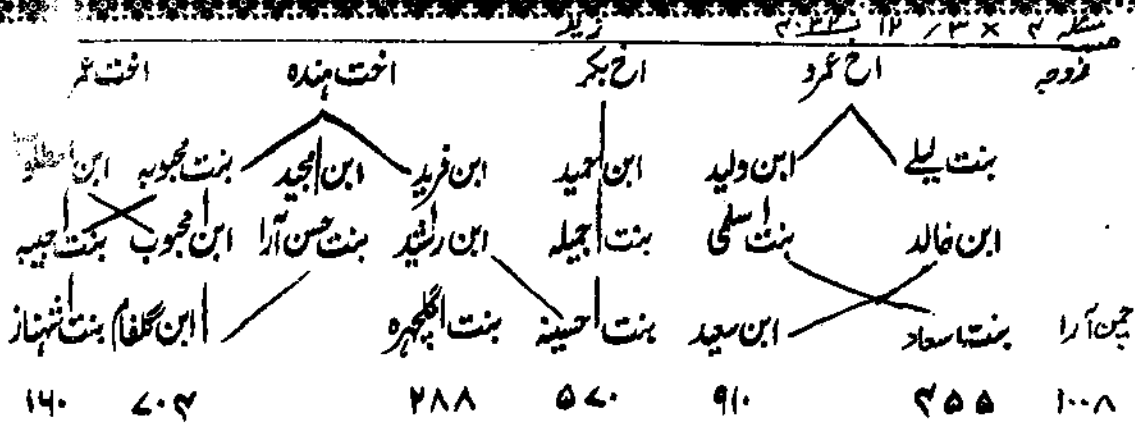 مسئلہ ۴ × ۳ / ۱۲ زید
زوجہ اخ عمرو اخ بکر اخت ہندہ اخت عمر
بنت لیلے ابن ولید ابن حمید ابن فرید ابن مجید بنت محبوبہ ابن
ابن خالد بنت سلمی بنت جمیلہ ابن رشید بنت حسن آرا ابن محبوب بنت حبیبہ
چمن آرا بنت سعاد ابن سعید بنت حسینہ بنت گلچہرہ ابن گلفام بنت شہناز
۱۰۰۸ ۴۵۵ ۹۱۰ ۵۷۰ ۲۸۸ ۷۰۴ ۱۶۰